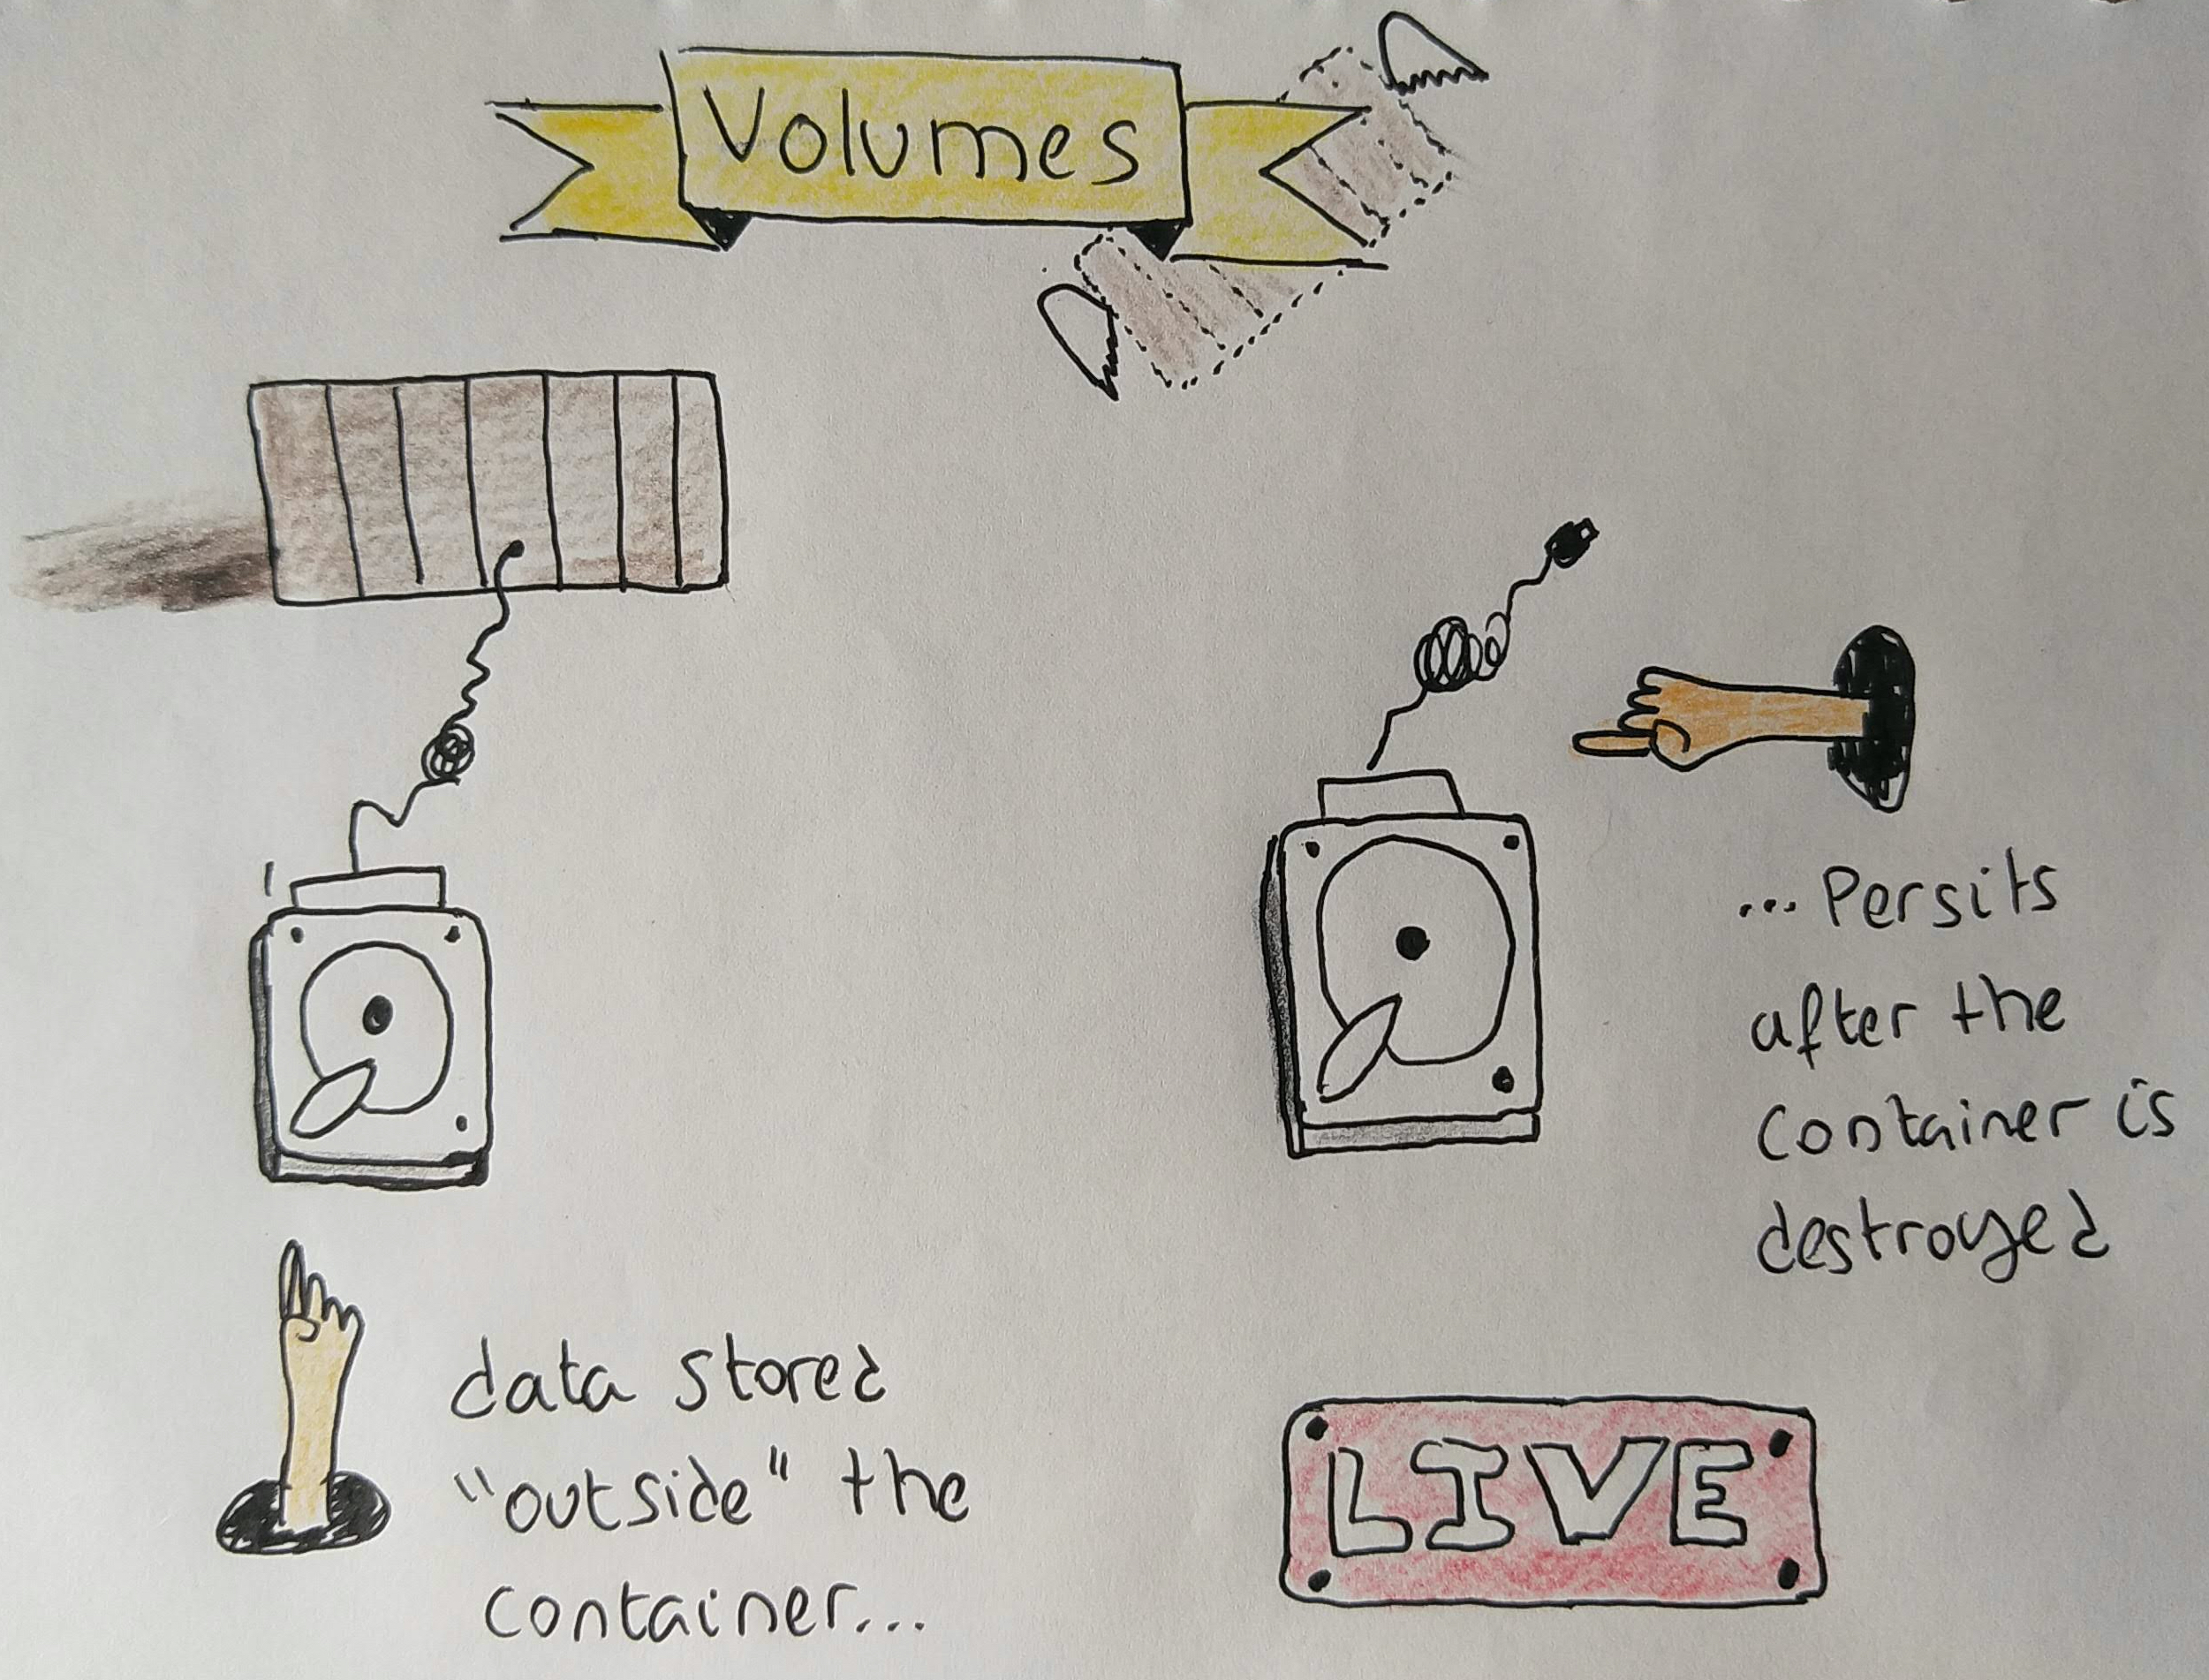 Volumes
data stored
"outside" the
container...
... Persits
after the
container is
destroyed
LIVE